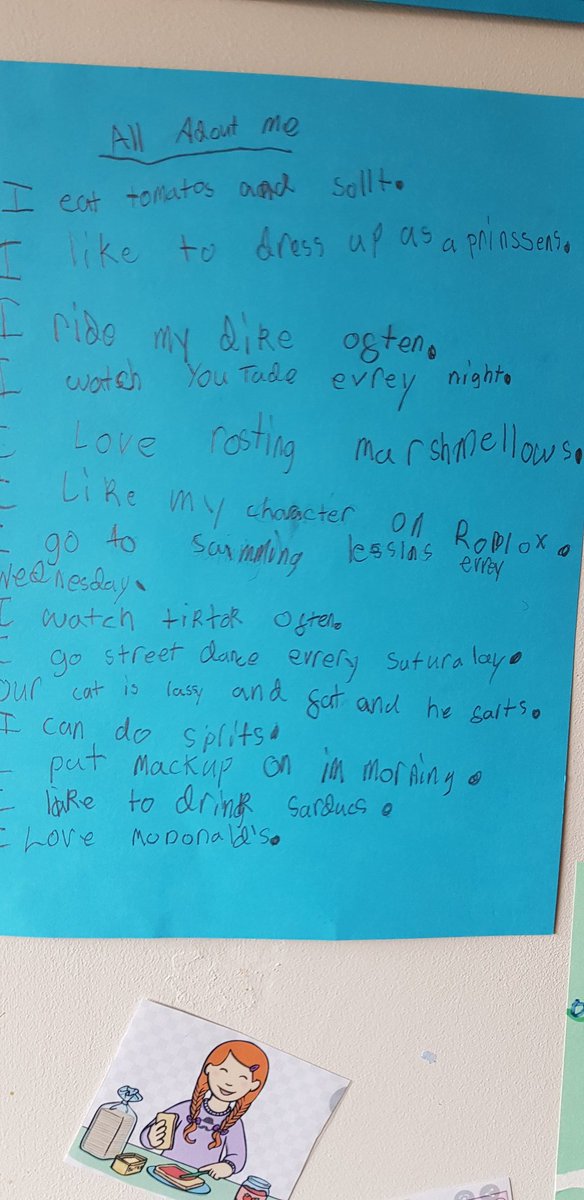 All Adout me
I eat tomatos and sollt.
I like to dress up as a prinssens.
I ride my dike ogten.
I watch YouTade evrey night.
I Love rosting marshmellows.
I Like my character on Roplox.
I go to saimming lessins errey
Wednesday.
I watch tiktok ogten.
I go street dance evrery suturalay.
Our cat is lassy and gat and he garts.
I can do splits.
I put mackup on in morning.
I like to drink sarducs.
I Love McDonald's.